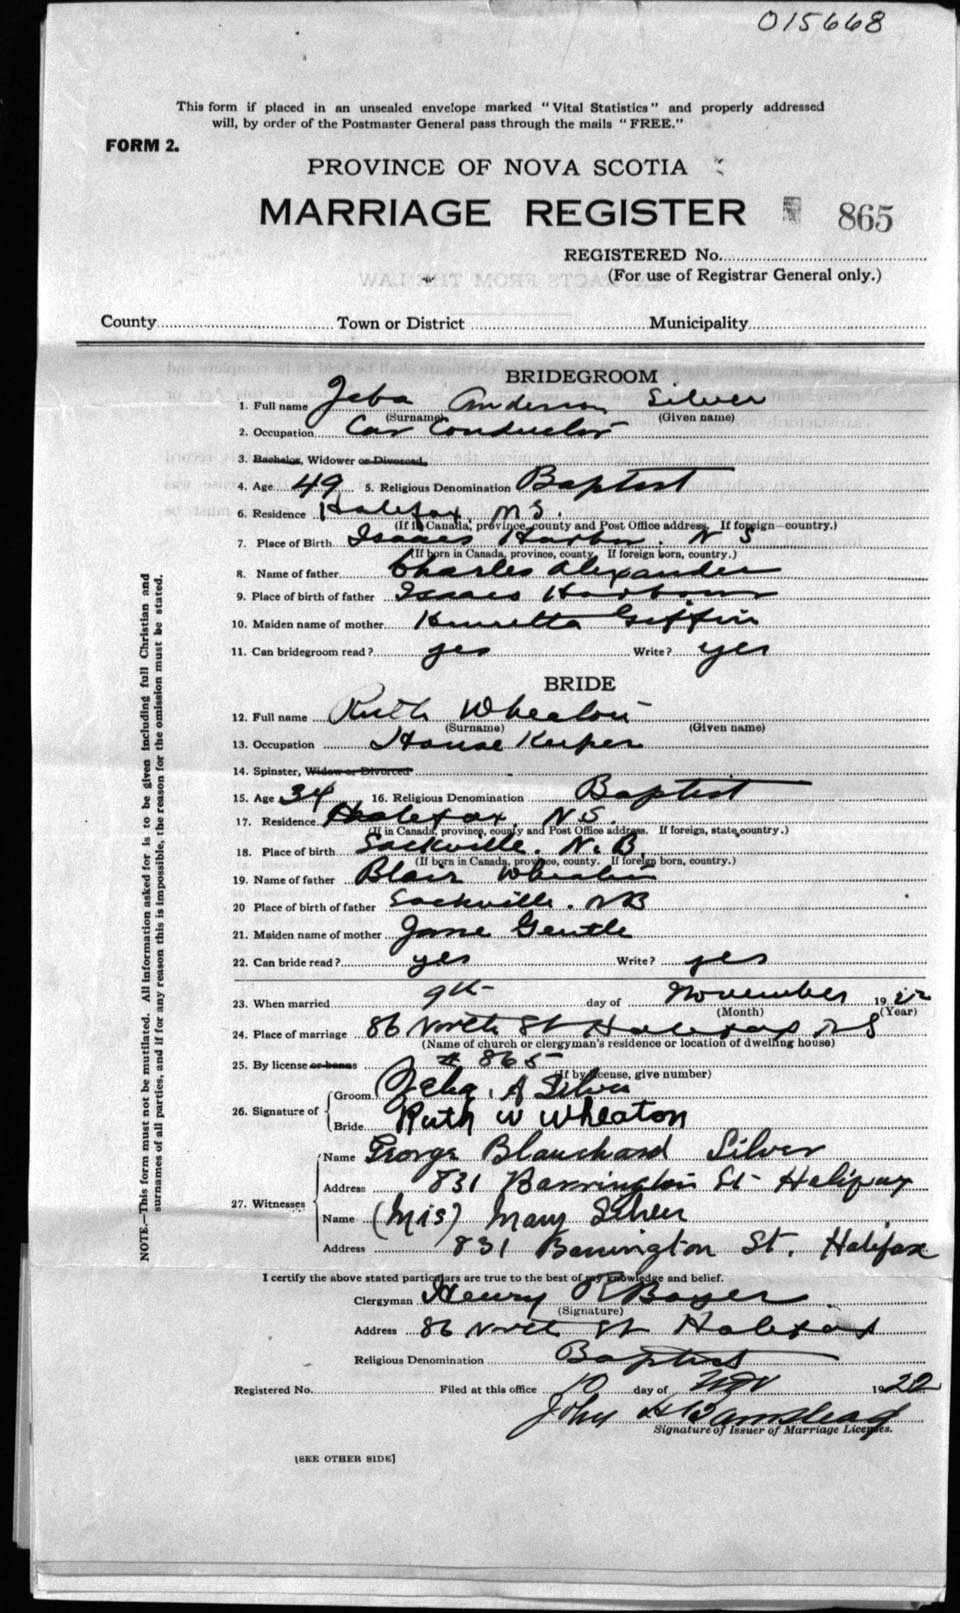 015668
This form if placed in an unsealed envelope marked "Vital Statistics" and properly addressed
will, by order of the Postmaster General pass through the mails "FREE."
FORM 2.
PROVINCE OF NOVA SCOTIA
MARRIAGE REGISTER 865
REGISTERED No.
(For use of Registrar General only.)
County Town or District Municipality
BRIDEGROOM
1. Full name Anderson Silver
(Surname) (Given name)
2. Occupation Car Conductor
3. Bachelor, Widower or Divorced.
4. Age 49 5. Religious Denomination Baptist
6. Residence Halifax, N.S.
(If in Canada, province, county and Post Office address. If foreign—country.)
7. Place of Birth Isaacs Harbor. N S
(If born in Canada, province, county. If foreign born, country.)
8. Name of father Charles Alexander
9. Place of birth of father Isaacs Harbour
10. Maiden name of mother Henretta Giffin
11. Can bridegroom read? yes Write? yes
BRIDE
12. Full name Ruth Wheaton
(Surname) (Given name)
13. Occupation House Keeper
14. Spinster, Widow or Divorced
15. Age 34 16. Religious Denomination Baptist
17. Residence Halifax, N.S.
(If in Canada, province, county and Post Office address. If foreign, state, country.)
18. Place of birth Sackville. N.B.
(If born in Canada, province, county. If foreign born, country.)
19. Name of father Blair Wheaton
20 Place of birth of father Sackville. NB
21. Maiden name of mother Jane Gentle
22. Can bride read? yes Write? yes
23. When married 9th day of November 1922
(Month) (Year)
24. Place of marriage 86 North St Halifax N S
(Name of church or clergyman's residence or location of dwelling house)
25. By license or banns # 865
(If by license, give number)
26. Signature of
Groom A Silver
Bride Ruth W Wheaton
27. Witnesses
Name George Blanchard Silver
Address 831 Barrington St Halifax
Name (Mrs) Mary Silver
Address 831 Barrington St. Halifax
I certify the above stated particulars are true to the best of my knowledge and belief.
Clergyman Henry R Boyer
(Signature)
Address 86 North St Halifax
Religious Denomination Baptist
Registered No. Filed at this office 10 day of Nov 1922
John H Barnstead
Signature of Issuer of Marriage Licenses.
[SEE OTHER SIDE]
NOTE.—This form must not be mutilated. All information asked for is to be given including full Christian and
surnames of all parties, and if for any reason this is impossible, the reason for the omission must be stated.